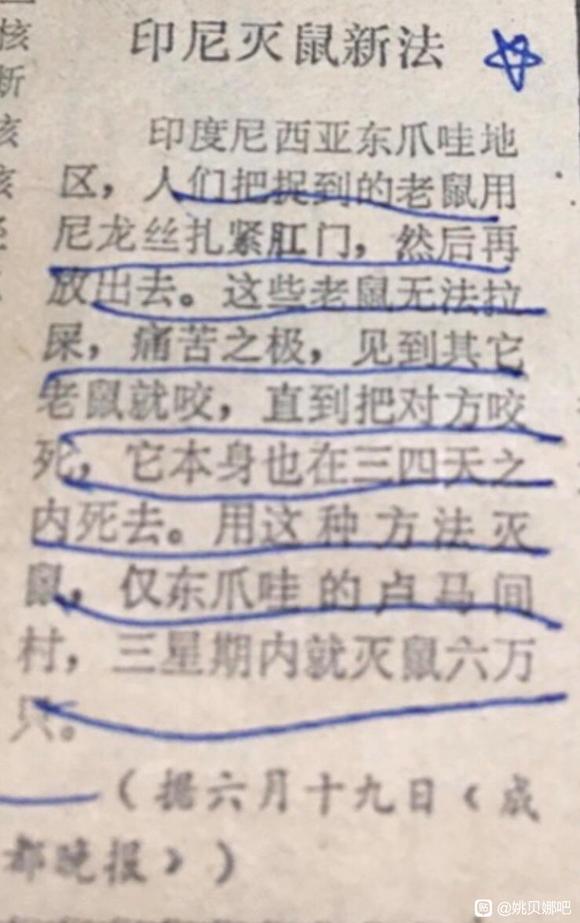 印尼灭鼠新法
印度尼西亚东爪哇地
区，人们把捉到的老鼠用
尼龙丝扎紧肛门，然后再
放出去。这些老鼠无法拉
屎，痛苦之极，见到其它
老鼠就咬，直到把对方咬
死，它本身也在三四天之
内死去。用这种方法灭
鼠，仅东爪哇的卢马间
村，三星期内就灭鼠六万
只。
（据六月十九日《成
都晚报》）
核
新
核
核
@姚贝娜吧